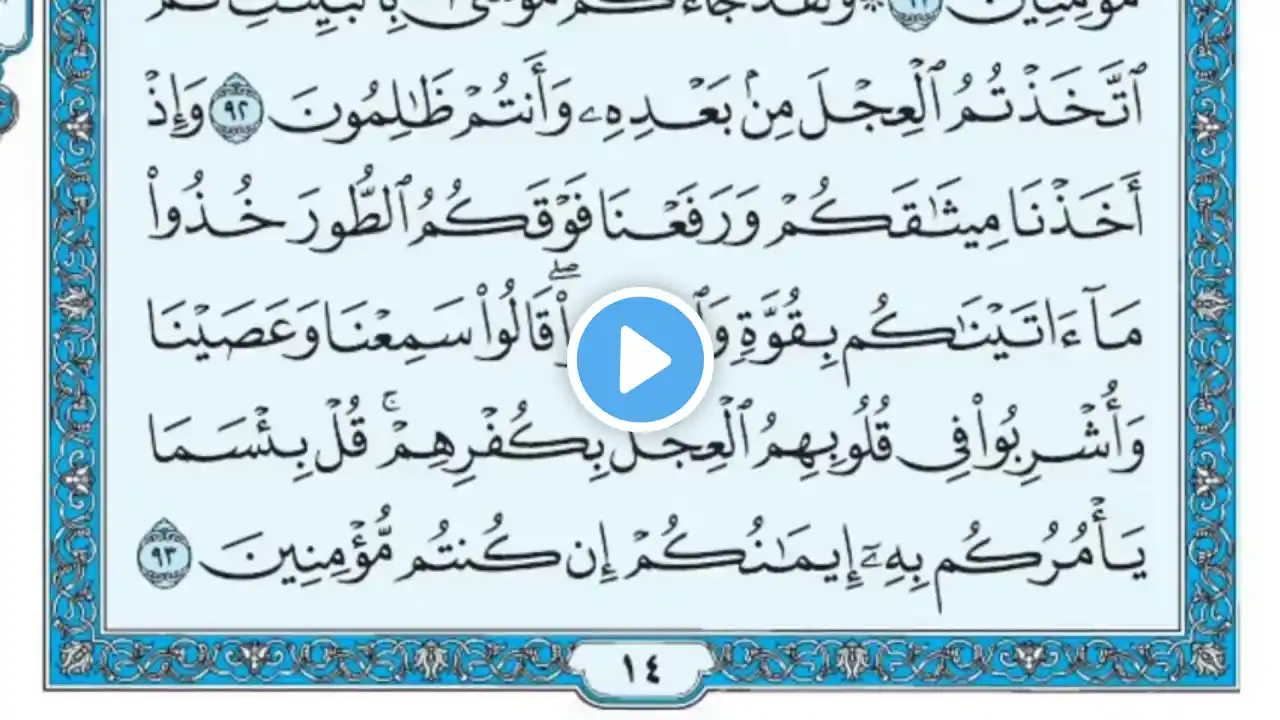 مُؤْمِنِينَ ٩١ ۞ وَلَقَدْ جَآءَكُم مُّوسَىٰ بِٱلْبَيِّنَـٰتِ ثُمَّ
ٱتَّخَذْتُمُ ٱلْعِجْلَ مِنۢ بَعْدِهِۦ وَأَنتُمْ ظَـٰلِمُونَ ٩٢ وَإِذْ
أَخَذْنَا مِيثَـٰقَكُمْ وَرَفَعْنَا فَوْقَكُمُ ٱلطُّورَ خُذُوا۟
مَآ ءَاتَيْنَـٰكُم بِقُوَّةٍ قَالُوا۟ سَمِعْنَا وَعَصَيْنَا
وَأُشْرِبُوا۟ فِى قُلُوبِهِمُ ٱلْعِجْلَ بِكُفْرِهِمْ ۚ قُلْ بِئْسَمَا
يَأْمُرُكُم بِهِۦٓ إِيمَـٰنُكُمْ إِن كُنتُم مُّؤْمِنِينَ ٩٣
١٤